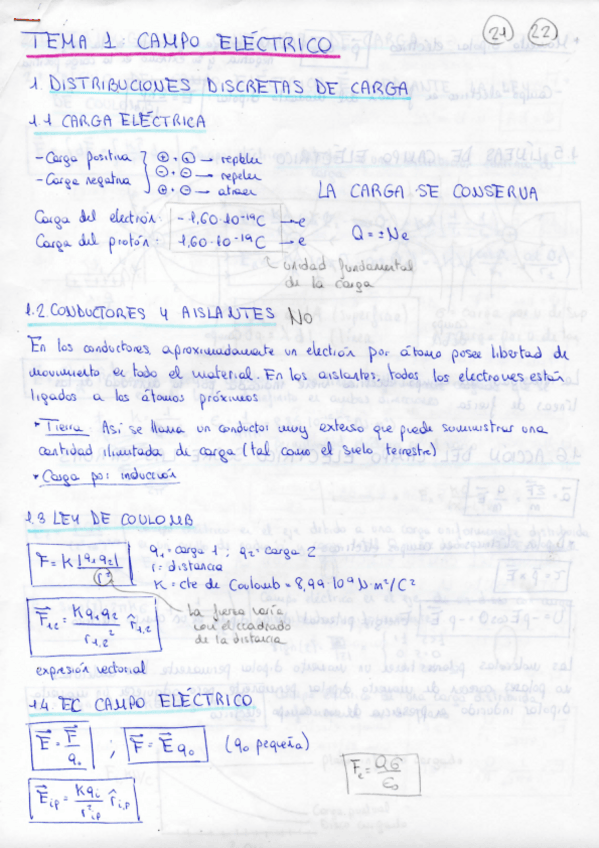 21 22
TEMA 1 CAMPO ELÉCTRICO
1. DISTRIBUCIONES DISCRETAS DE CARGA
1.1 CARGA ELÉCTRICA
- Carga positiva } ⊕ · ⊕ → repelen
- Carga negativa ⊖ · ⊖ → repelen
⊕ · ⊖ → atraen
LA CARGA SE CONSERVA
Carga del electrón: -1,60·10⁻¹⁹C → -e
Carga del protón: 1,60·10⁻¹⁹C → e
Q = ±Ne
unidad fundamental
de la carga
1.2 CONDUCTORES Y AISLANTES NO
En los conductores, aproximadamente un electrón por átomo posee libertad de
movimiento en todo el material. En los aislantes, todos los electrones están
ligados a los átomos próximos
* Tierra Así se llama un conductor muy extenso que puede suministrar una
cantidad ilimitada de carga (tal como el suelo terrestre)
* Carga por inducción
1.3 LEY DE COULOMB
F = K |q₁q₂| / r²
q₁ = carga 1 ; q₂ = carga 2
r = distancia
K = cte de Coulomb = 8,99·10⁹ N·m²/C²
F⃗₁,₂ = K q₁q₂ / r₁,₂² r̂₁,₂
La fuerza varía
con el cuadrado
de la distancia
expresión vectorial
1.4. EL CAMPO ELÉCTRICO
E⃗ = F⃗ / q₀ ; F⃗ = E⃗ q₀ (q₀ pequeña)
E⃗ᵢₚ = K qᵢ / r²ᵢₚ r̂ᵢ,ₚ